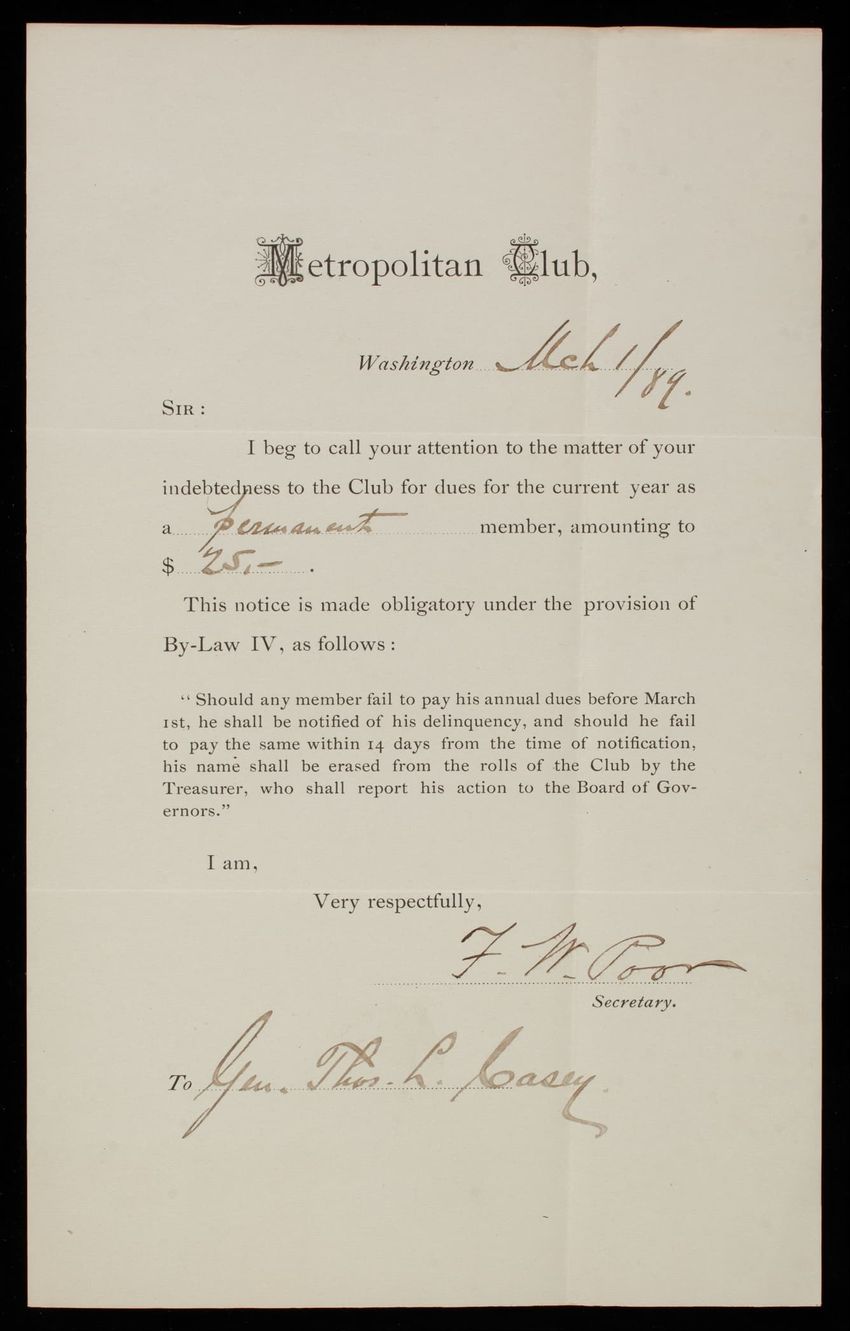 Metropolitan Club,
Washington Mch 1/89.
SIR :
I beg to call your attention to the matter of your
indebtedness to the Club for dues for the current year as
a permanent member, amounting to
$ 25.— .
This notice is made obligatory under the provision of
By-Law IV, as follows :
“ Should any member fail to pay his annual dues before March
1st, he shall be notified of his delinquency, and should he fail
to pay the same within 14 days from the time of notification,
his name shall be erased from the rolls of the Club by the
Treasurer, who shall report his action to the Board of Gov-
ernors.”
I am,
Very respectfully,
F. W. Poor
Secretary.
To Gen. Thos. L. Casey